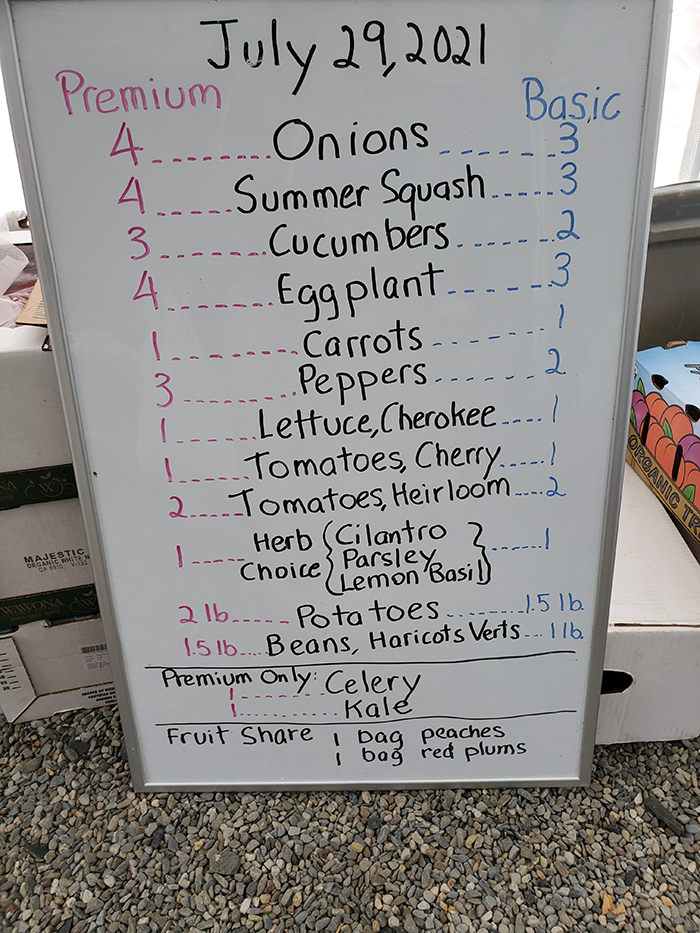 July 29, 2021
Premium Basic
4 Onions 3
4 Summer Squash 3
3 Cucumbers 2
4 Eggplant 3
1 Carrots 1
3 Peppers 2
1 Lettuce, Cherokee 1
1 Tomatoes, Cherry 1
2 Tomatoes, Heirloom 2
1 Herb Choice { Cilantro
Parsley
Lemon Basil } 1
2 lb Potatoes 1.5 lb.
1.5 lb Beans, Haricots Verts 1 lb.
Premium Only:
1 Celery
1 Kale
Fruit Share 1 bag peaches
1 bag red plums
MAJESTIC
ORGANIC WHITE N
WAWONA
ORGANIC